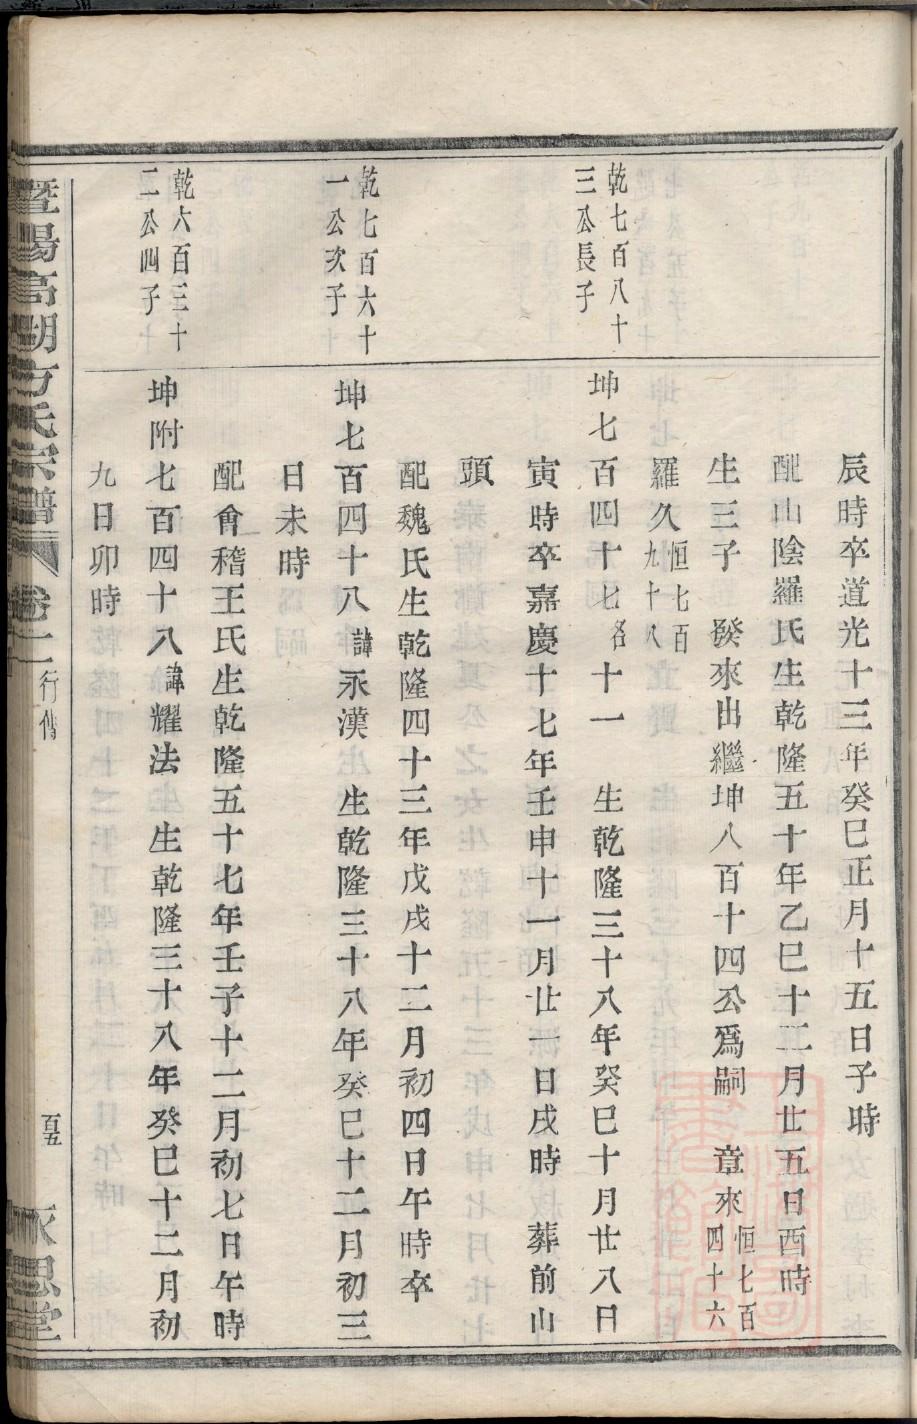 辰時卒道光十三年癸巳正月十五日子時
配山陰羅氏生乾隆五十年乙巳十二月廿五日酉時
生三子 發來出繼坤八百十四公爲嗣 章來恒七百四十六
羅久恒七百九十八
乾七百八十三公長子
坤七百四十七名十一 生乾隆三十八年癸巳十月廿八日
寅時卒嘉慶十七年壬申十一月廿一日戌時 葬前山
頭
配魏氏生乾隆四十三年戊戌十二月初四日午時卒
乾七百六十一公次子
坤七百四十八諱永漢 生乾隆三十八年癸巳十二月初三
日未時
配會稽王氏生乾隆五十七年壬子十二月初七日午時
乾六百三十二公四子
坤附七百四十八諱耀法 生乾隆三十八年癸巳十二月初
九日卯時
暨陽高湖方氏宗譜 卷二 行傳 百五 永思堂